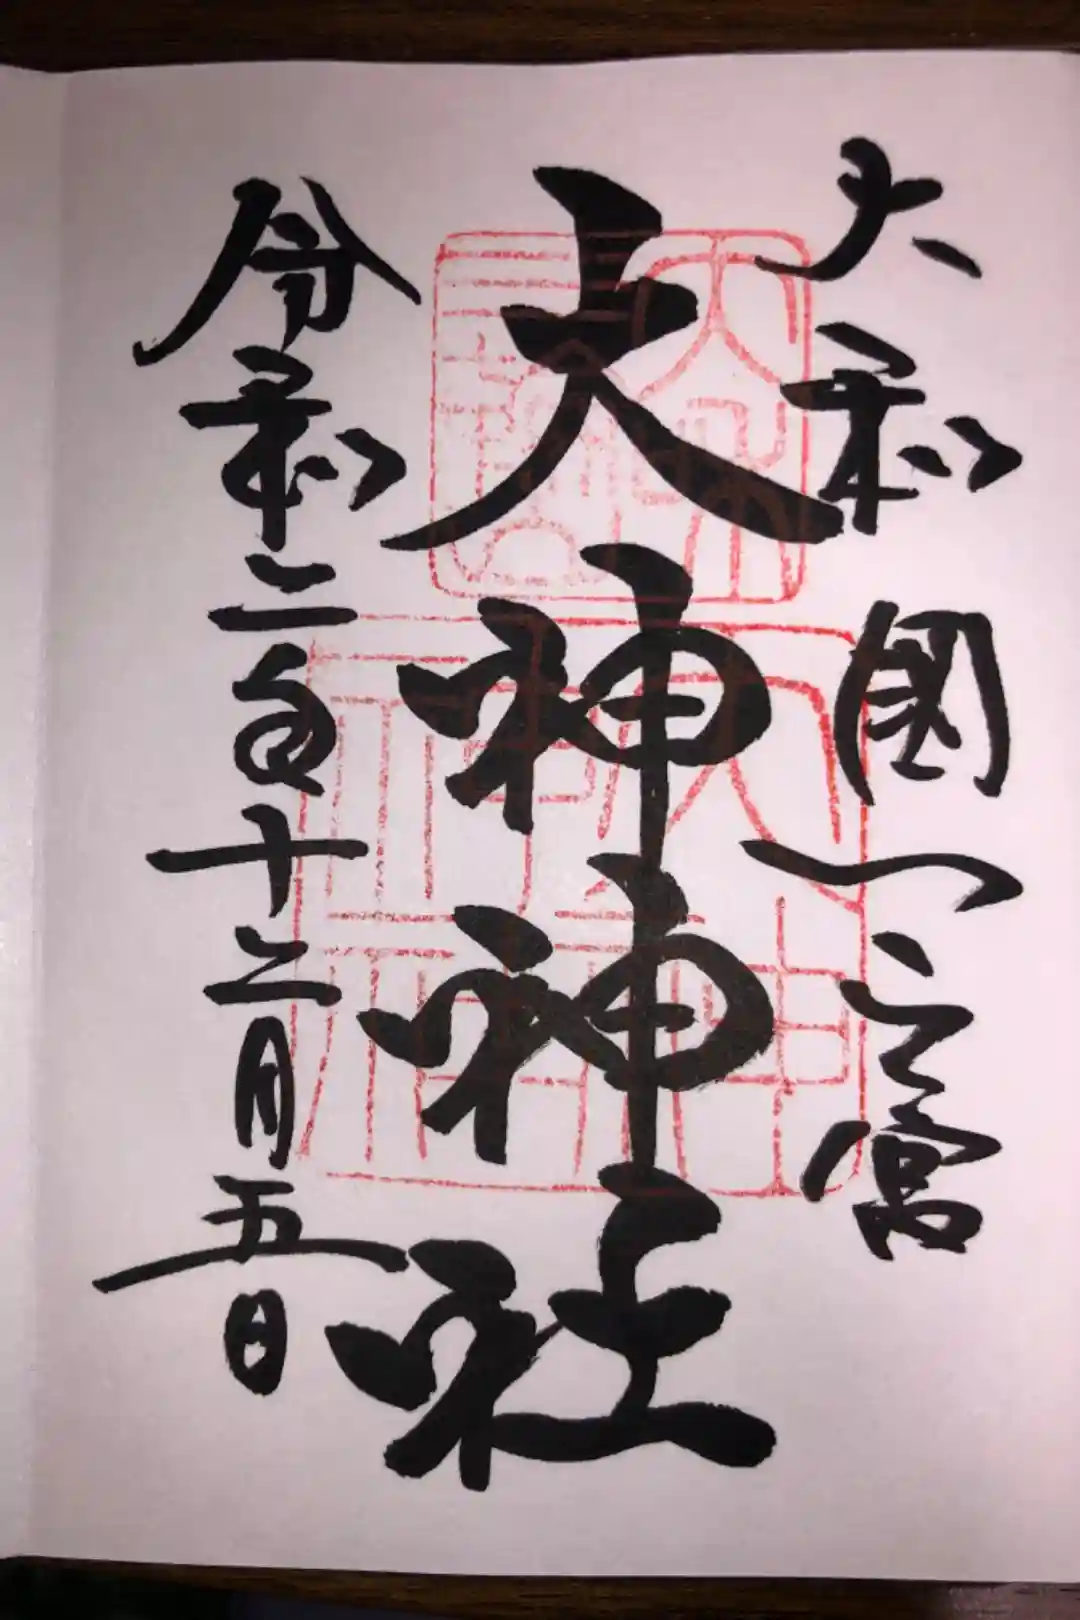 大和國一之宮
大神神社
令和二年十二月五日